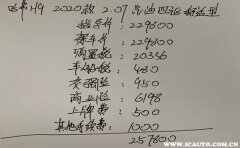 哈弗H9 2020款 2.0T 汽油四驱 舒适型
指导价: 229800
裸车价: 229800
购置税: 20336
车船税: 480
交强险: 950
商业险: 6198
上牌费: 500
其他手续费: 1000
257800
www.xcauto.com.cn